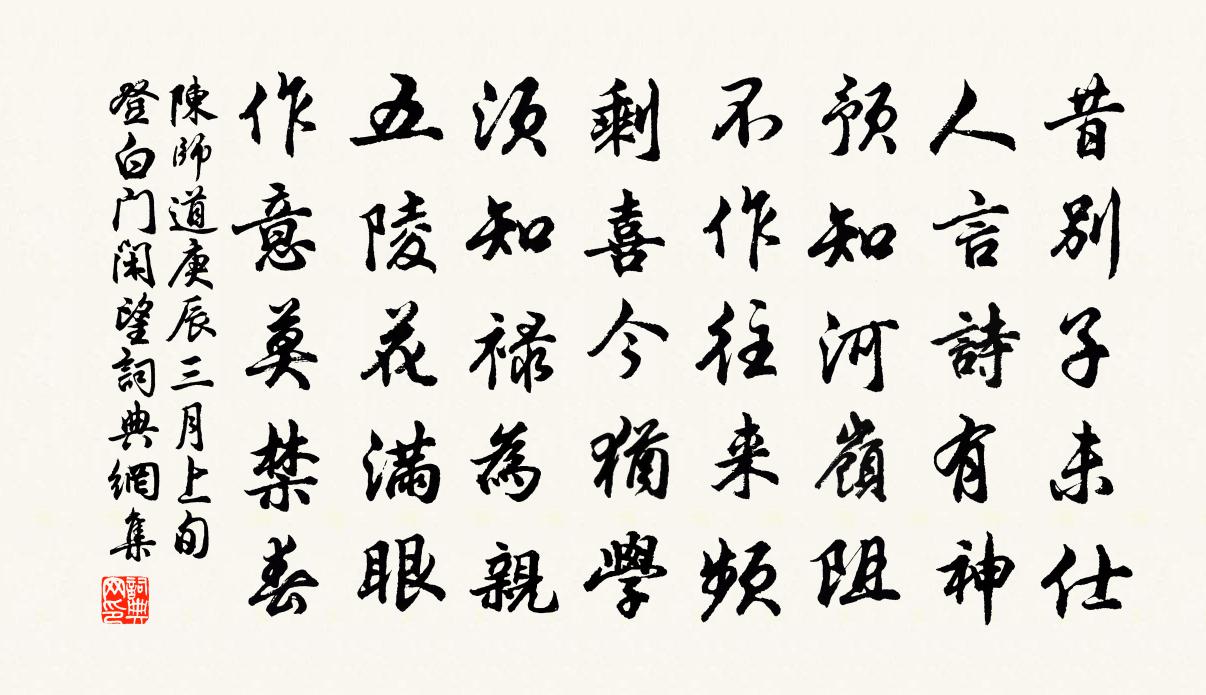 昔別子未仕
人言詩有神
預知河嶺阻
不作往来頻
剩喜今猶學
須知禄為親
五陵花滿眼
作意莫禁春
陳師道庚辰三月上旬
登白门閑望詞典網集
詞典网印